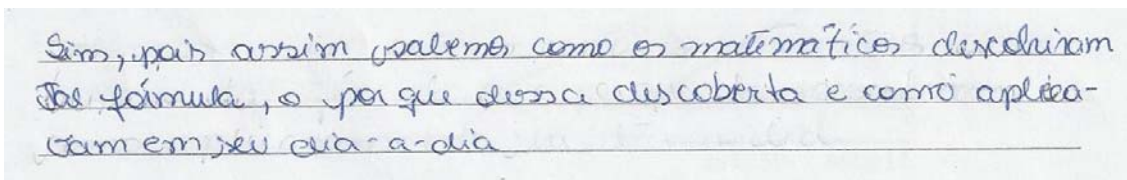 Sim, pois assim sabemos como os matemáticos descobriram
tal fórmula, o por que dessa descoberta e como aplica-
vam em seu dia-a-dia